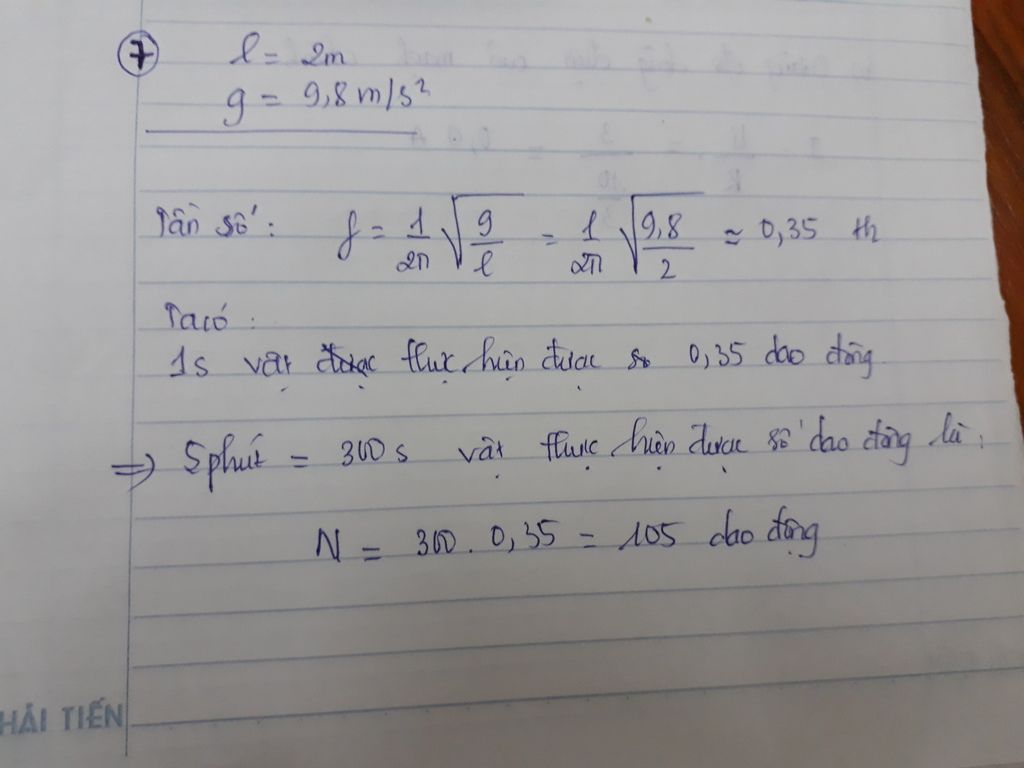 7 l = 2m
g = 9,8 m/s²
Tần số: f = 1/2π √(g/l) = 1/2π √(9,8/2) ≈ 0,35 Hz
Ta có:
1s vật được thực hiện được so 0,35 dao động
=> 5 phút = 300 s vật thực hiện được số dao động là:
N = 300 . 0,35 = 105 dao động
HẢI TIẾN